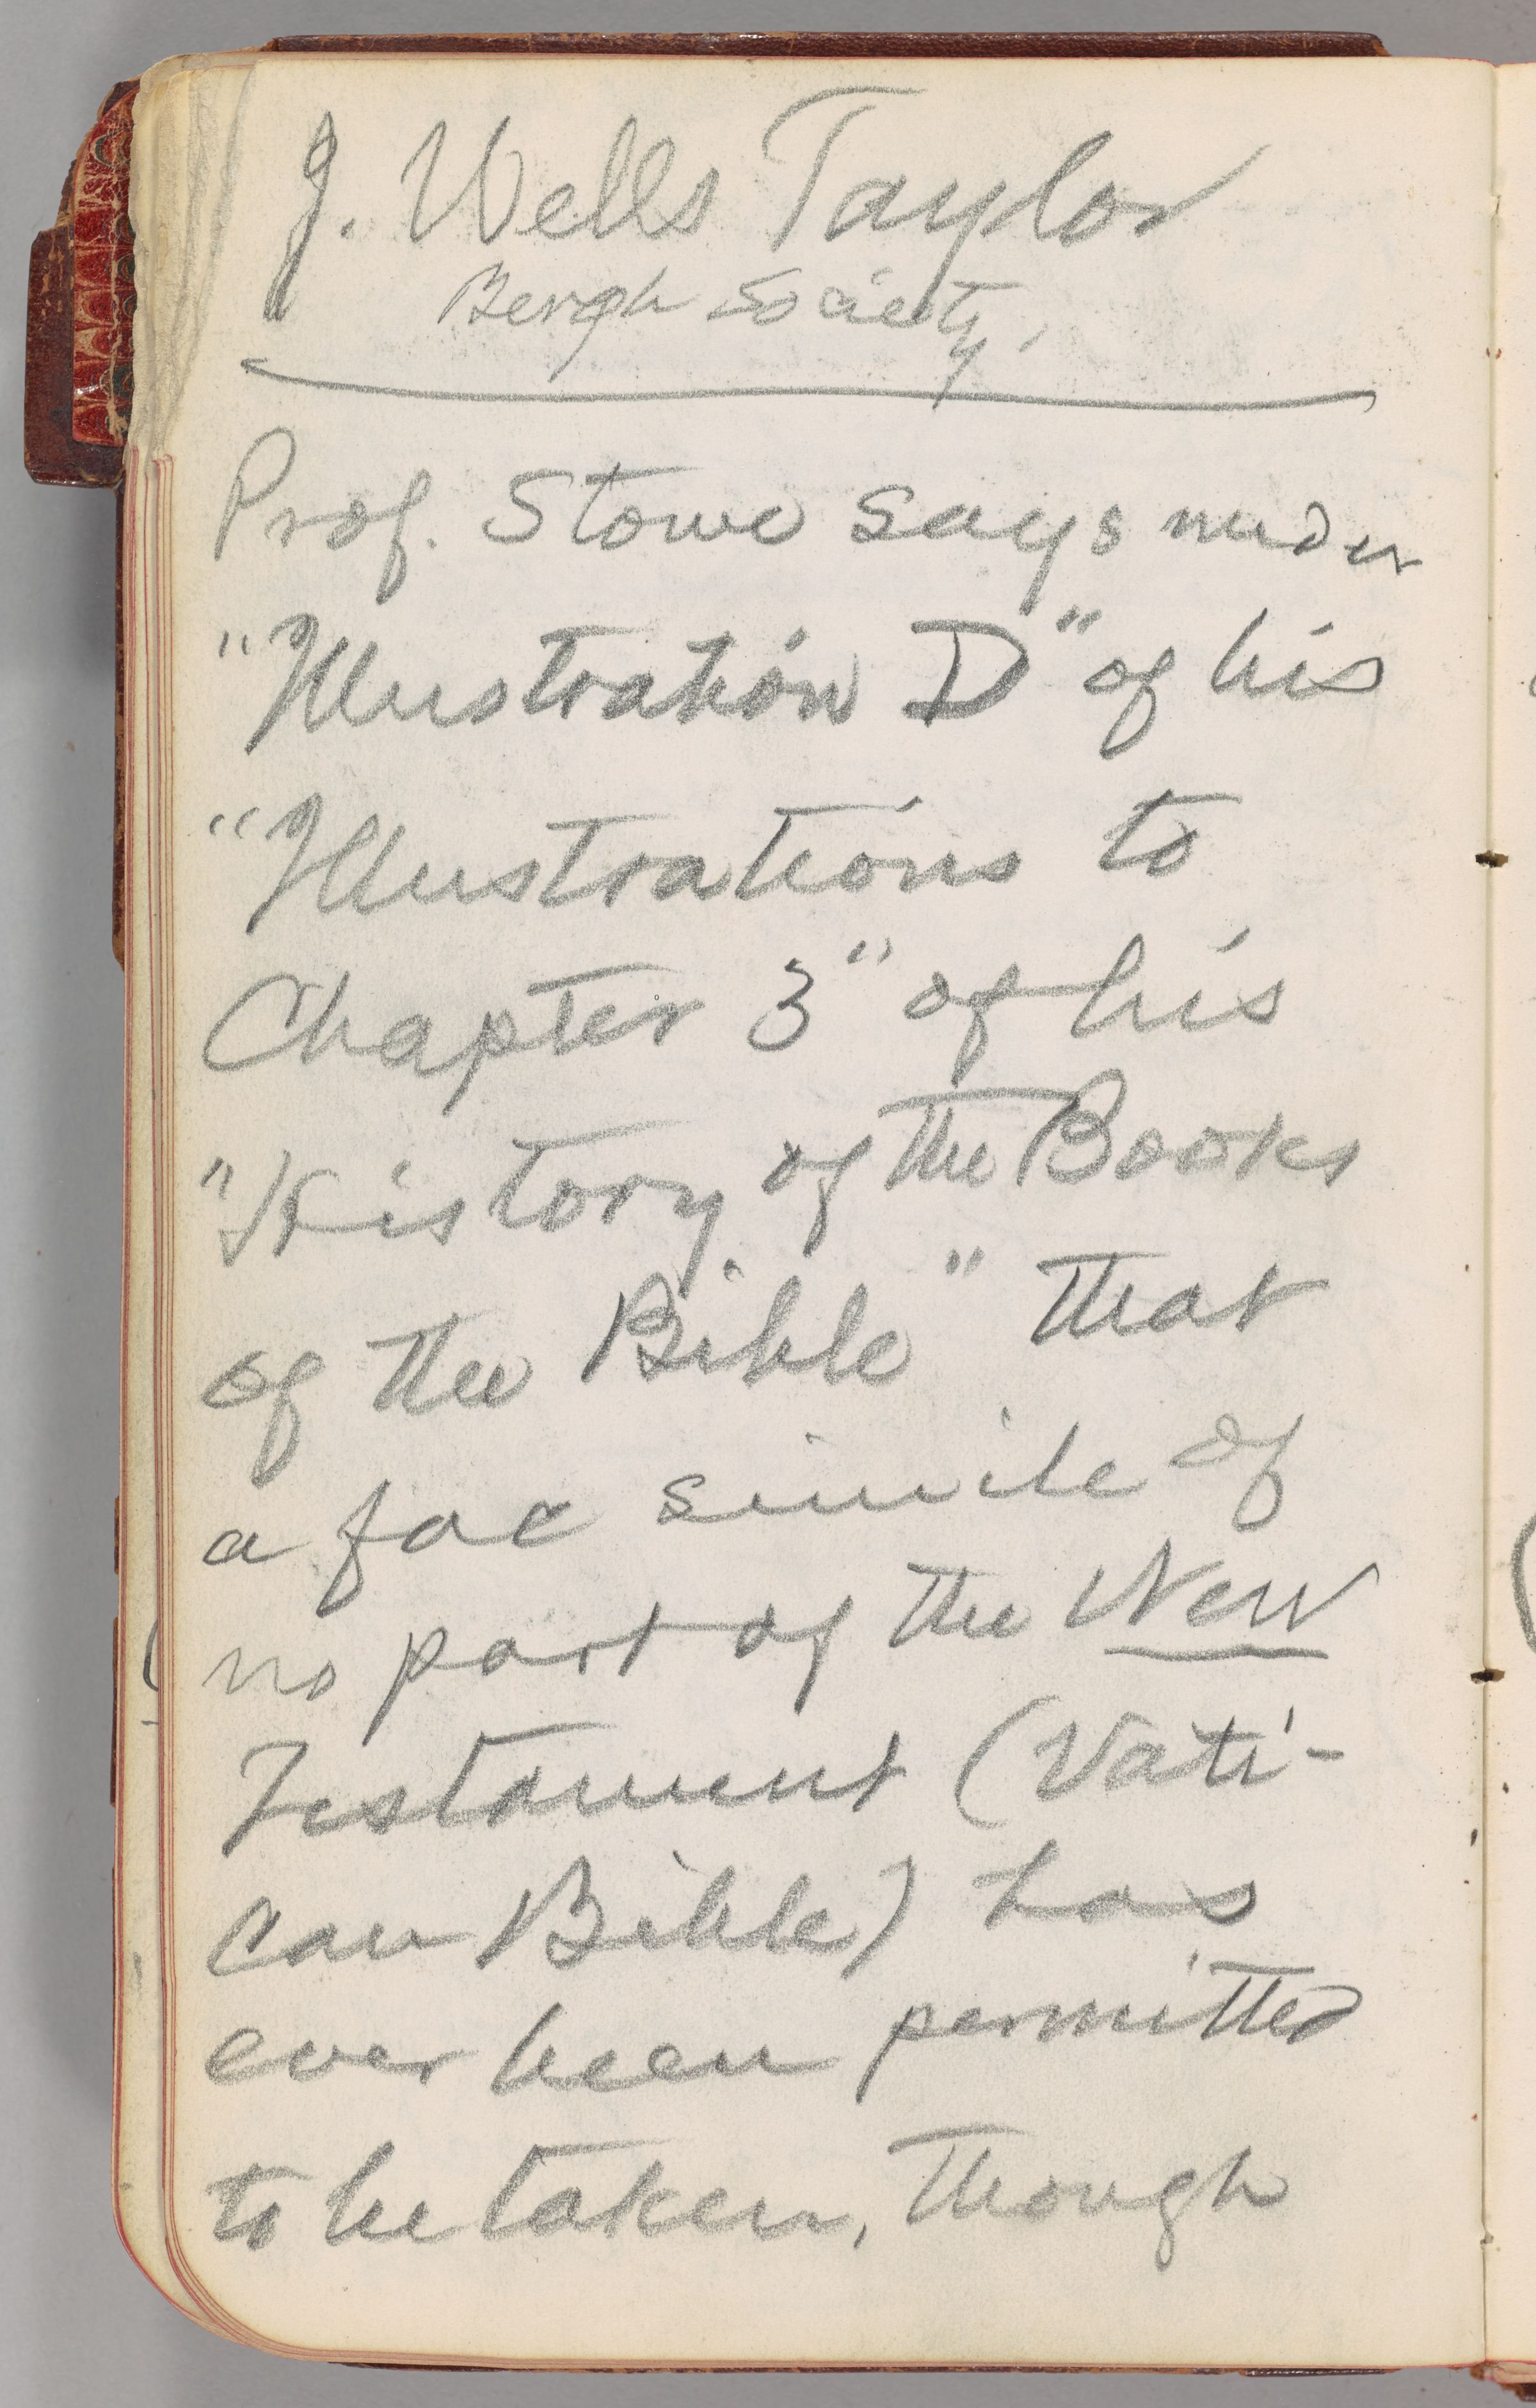 J. Wells Taylor
Bergh Society.
Prof. Stowe says under
"Illustration D" of his
"Illustrations to
Chapter 3" of his
"History of the Books
of the Bible" that
a fac simile of
no part of the New
Testament (Vati-
can Bible) has
ever been permitted
to be taken, though